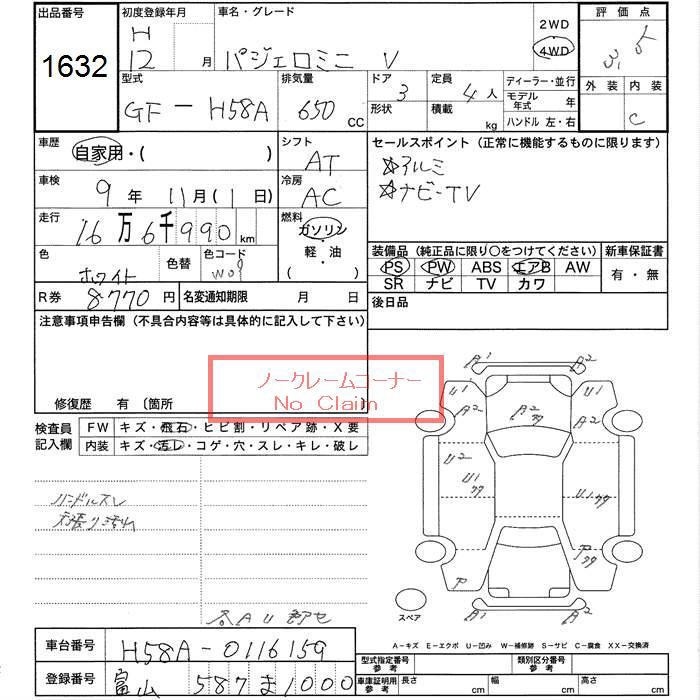 出品番号 初度登録年月 車名・グレード 2WD 評価点
1632 H 12 月 パジェロミニ V 4WD 3.5
型式 排気量 ドア 定員 ディーラー・並行 外装 内装
GF-H58A 650 CC 3 4 人 モデル年式 年 C
形状 積載 kg ハンドル 左・右
車歴 自家用・( ) シフト AT
セールスポイント (正常に機能するものに限ります)
☆アルミ
☆ナビ-TV
車検 9 年 11 月 ( 1 日) 冷房 AC
走行 16 万 6 千 990 km 燃料 ガソリン
軽・油
( )
色 ホワイト 色替 色コード W09
装備品 (純正品に限り○をつけてください) 新車保証書
PS PW ABS エアB AW 有・無
SR ナビ TV カワ
R券 8770 円 名変通知期限 月 日
後日品
注意事項申告欄 (不具合内容等は具体的に記入して下さい)
ノークレームコーナー
No Claim
修復歴 有 〔箇所 〕
検査員記入欄 FW キズ・飛石・ヒビ割・リペア跡・X要
内装 キズ・汚レ・コゲ・穴・スレ・キレ・破レ
ハンドルスレ
天張り汚れ
A1 A2
U1 A2 A2 U1 A2
U2 U1 U1
P P
A1 A2
スペア
A-キズ E-エクボ U-凹み W-補修跡 S-サビ C-腐食 XX-交換済
車台番号 H58A-0116159
登録番号 富山 587 ま 1000
型式指定番号 参考 類別区分番号 参考
車庫証明用 参考 長さ cm 幅 cm 高さ cm